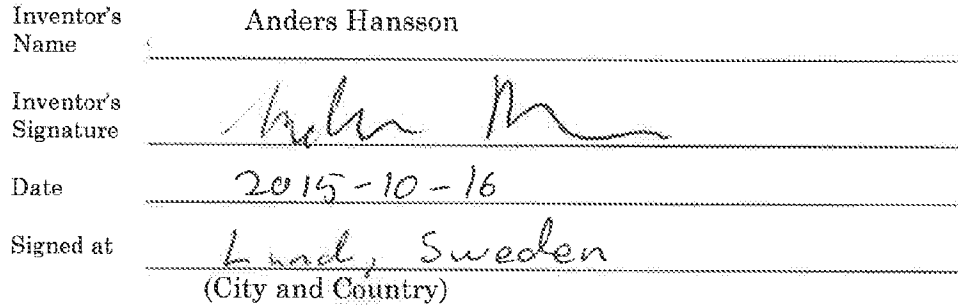 Inventor's
Name
Anders Hansson
Inventor's
Signature
Date 2015-10-16
Signed at Lund, Sweden
(City and Country)